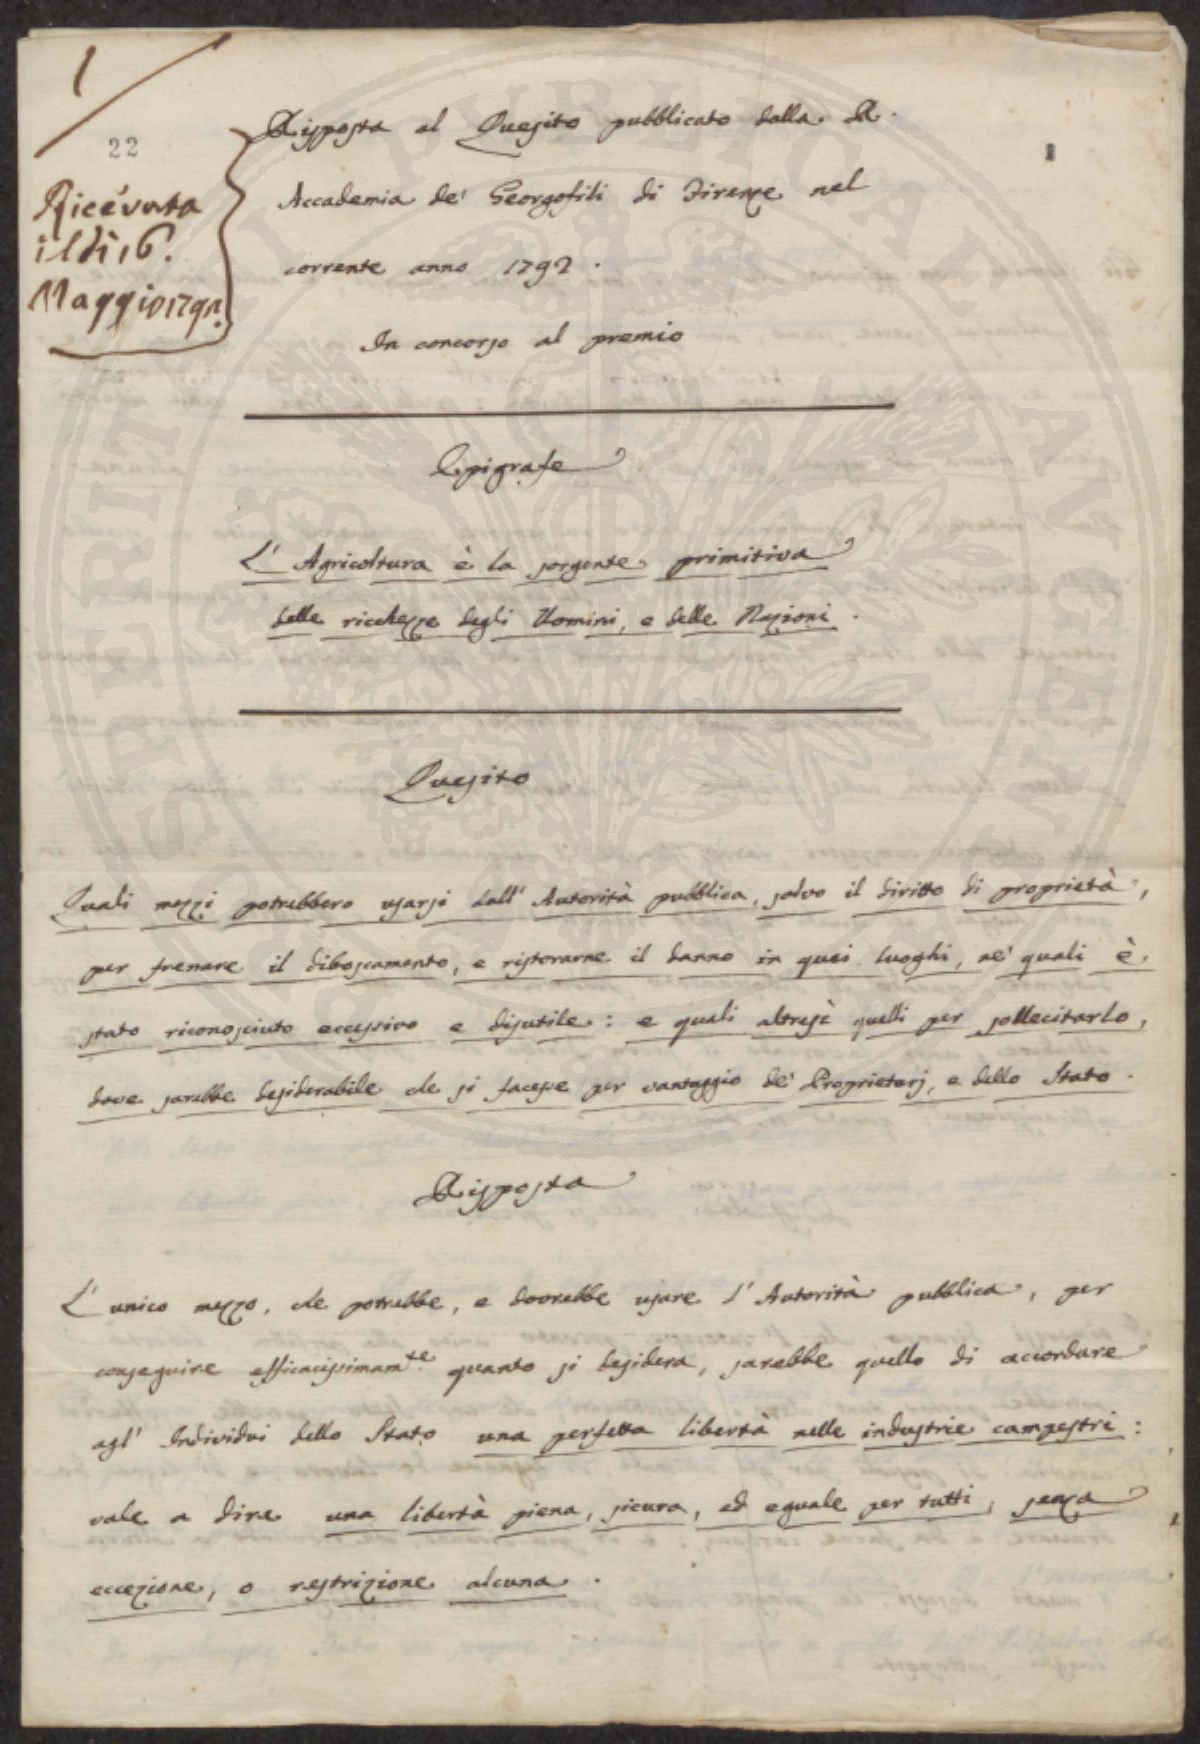 1
22
Ricevuta
il dì 16.
Maggio 1792.
Risposta al Quesito pubblicato dalla R.
Accademia de' Georgofili di Firenze nel
corrente anno 1792.
In concorso al premio
Epigrafe
L' Agricoltura è la sorgente primitiva
delle ricchezze degli Uomini, e delle Nazioni.
Quesito
Quali mezzi potrebbero usarsi dall' Autorità pubblica, salvo il diritto di proprietà,
per frenare il diboscamento, e ristorarne il danno in quei luoghi, ne' quali è
stato riconosciuto eccessivo e disutile: e quali altresì quelli per sollecitarlo,
dove sarebbe desiderabile che si facesse per vantaggio de' Proprietarj, e dello Stato.
Risposta
L' unico mezzo, che potrebbe, e dovrebbe usare l' Autorità pubblica, per
conseguire efficacissimam.te quanto si desidera, sarebbe quello di accordare
agl' Individui dello Stato una perfetta libertà nelle industrie campestri:
vale a dire una libertà piena, sicura, ed eguale per tutti, senza
eccezione, o restrizione alcuna.
PROSPERITATI PUBLICAE AVGENDAE